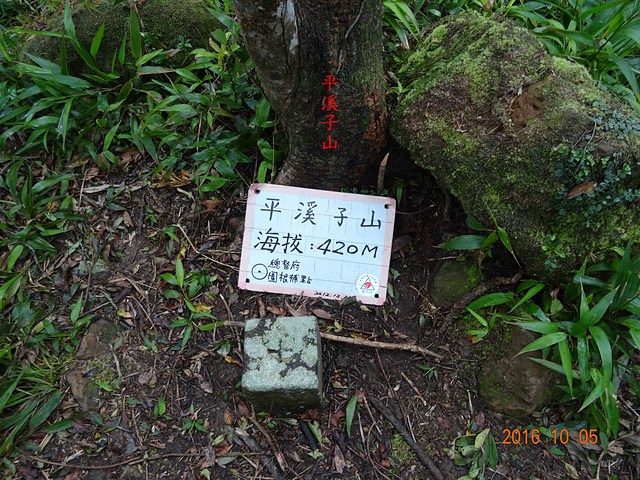 平溪子山
平溪子山
海拔:420M
總督府
圖根補點
2016 10 05